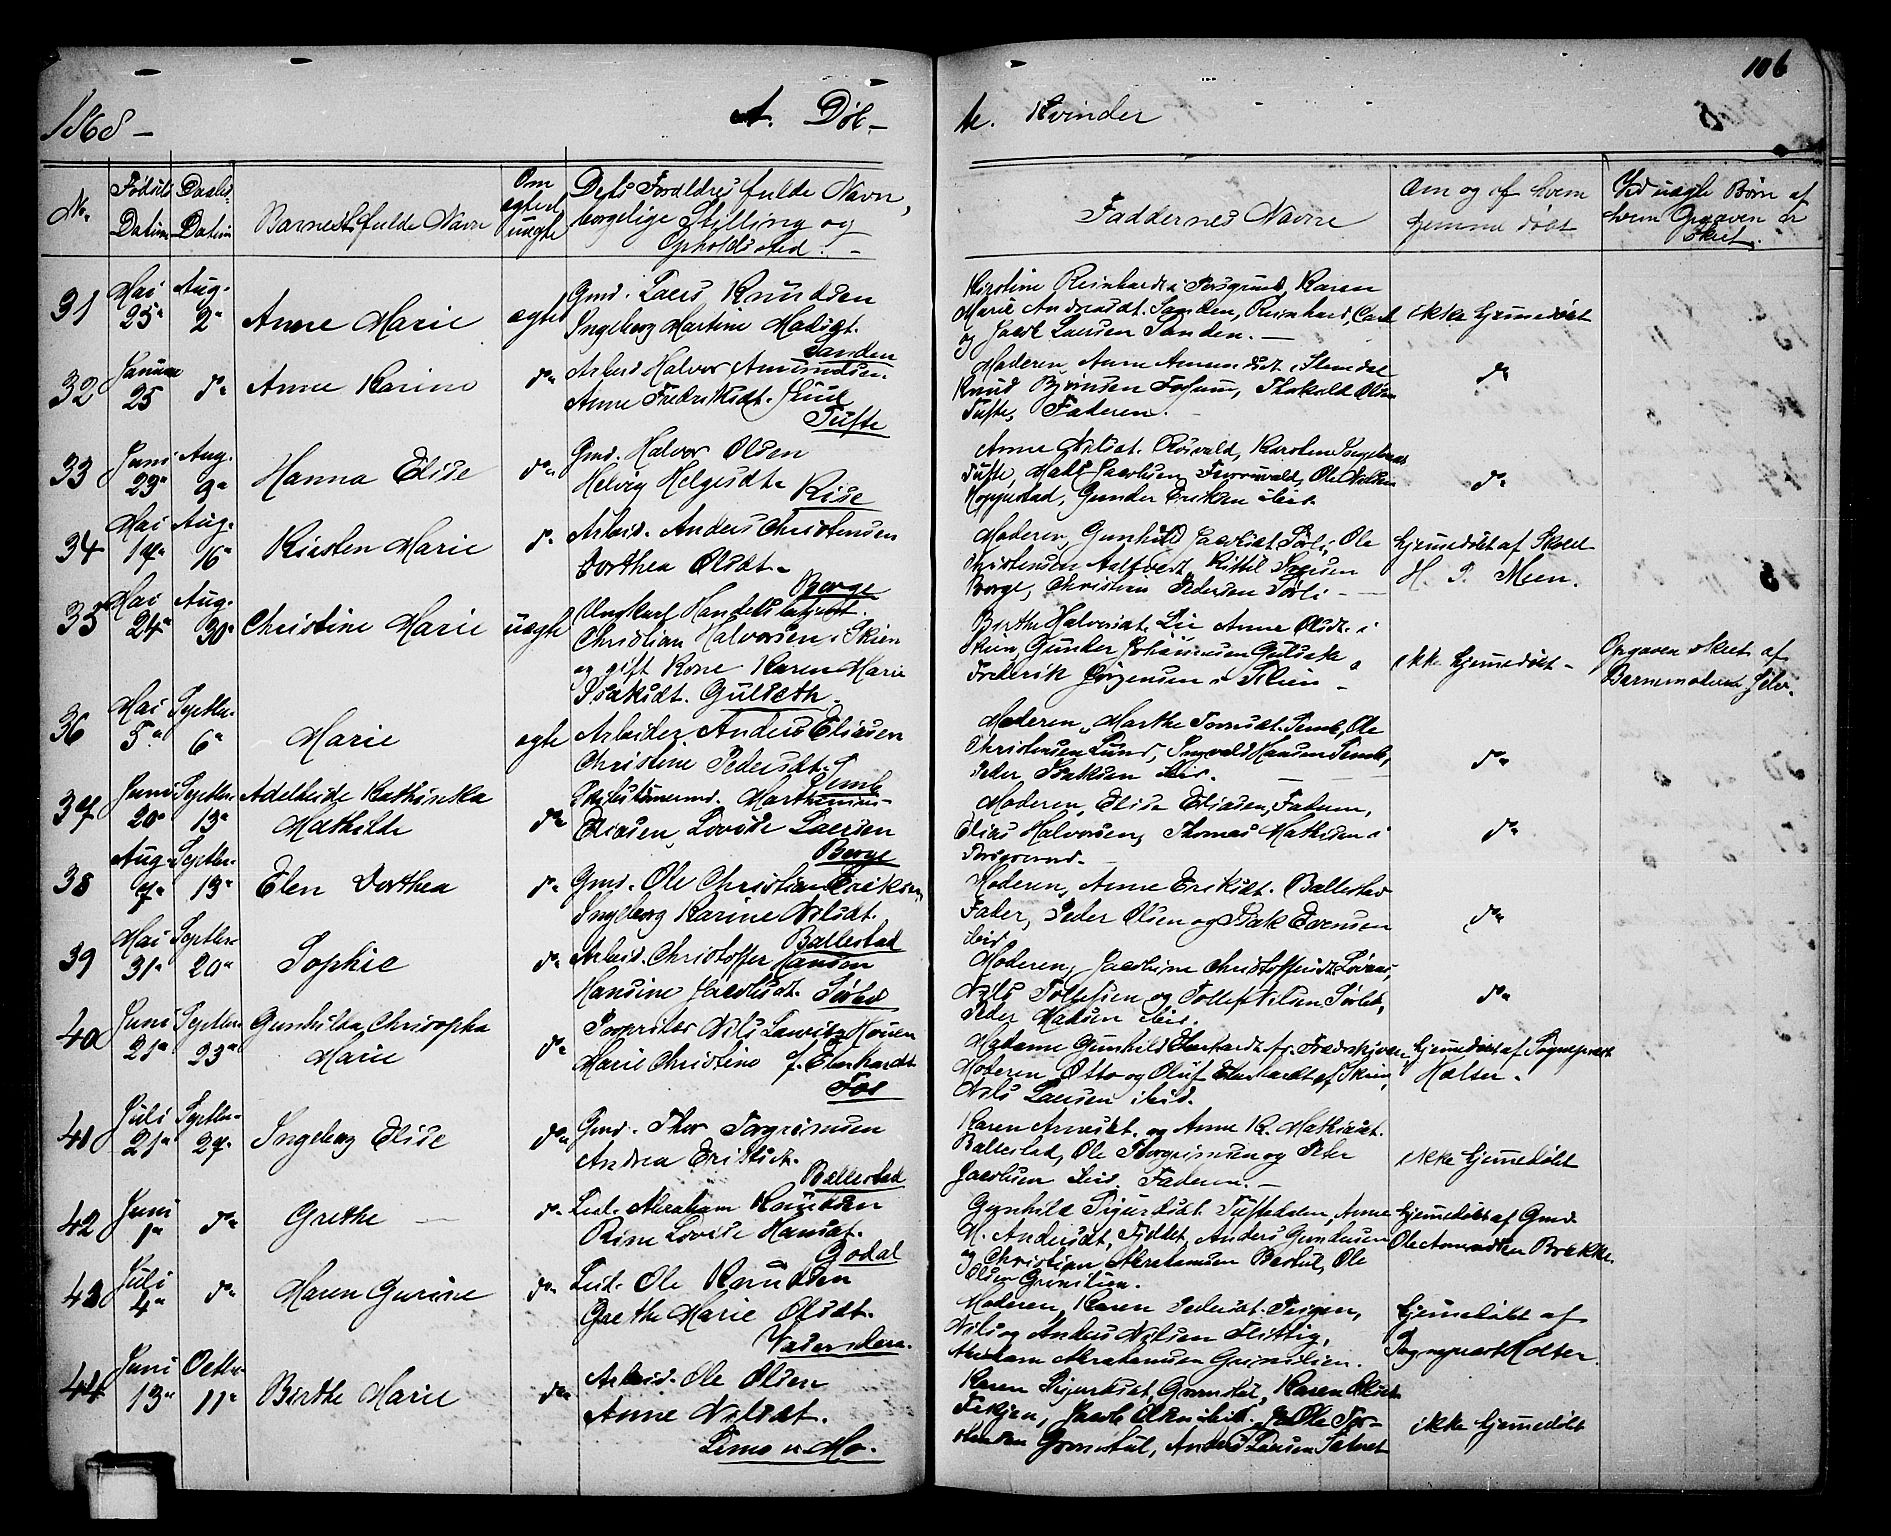 106
1868 - A. Døb- te. Kvinder
No. Fødsels Datum Daabs Datum Barnets fulde Navn Om ægte el. uægte Dets Forældres fulde Navn, borgelige Stilling og Opholdssted. - Faddernes Navne Om og af hvem hjemme døbt Ved uægte Børn af hvem Opgaven er skeet.
31 Mai 25 Aug. 2 Anne Marie ægte
Gmd. Laers Knudsen
Ingeborg Martine Madsdt.
Sanden
Kirstine Reinhardt i Porsgrund, Karen
Marie Andersdt. Sanden, Reinhard, Carl
og Jacob Laersen Sanden. -
ikke hjemmedøbt
32 Januar 25 do Anne Karine do
Arbeid. Halvor Amundsen
Anne Fredriksdt.
Tufte
Moderen, Anne Amundsdt.
Knud Bjørnsen Fossum, Olsen
Tufte, Faderen.
do
33 Juni 29 Aug. 9 Hanna Elise do
Gmd. Halvor Olsen
Helvig Helgesdt.
Rise
Anne Nilsdt. Karsten
Tufte, Jacobsen Ole Nilsen
Hoppestad, Gunder Eriksen ibid.
do
34 Mai 17 Aug. 16 Kirsten Marie do
Arbeid. Anders Christensen
Dorthea Olsdt.
Borge
Moderen, Gunhild Jacobsdt. Sørli, Ole
Christensen Kittil
Borge, Christian Pedersen Sørli -
hjemmedøbt af
H. P. Moen.
35 Mai 24 Aug. 30 Christine Marie uægte
Ungkarl Handelsbetjent
Christian Halvorsen i Skien
og gift Kone Karen Marie
Isaksdt. Gulseth
Birthe Halvorsdt. Lie Anne Olsdt. i
Skien, Gunder Johannesen Gulsæth
Frederik Jørgensen i Skien -
ikke hjemmedøbt -
Opgaven skeet af
Barnemoderen selv.
36 Mai 5 Septbr. 6 Marie ægte
Arbeider Anders Eliasen
Christine Pedersdt.
Semb
Moderen, Marthe Semb, Ole
Christensen Lund, Ingvald Hansen Semb,
Peder Isaksen ibid.
do
37 Juni 20 Septbr. 13 Adelheide Kathinka
Mathilde do
Marthinius
Eliasen, Lovise Laersen
Borge
Moderen, Elise Eliasen, Faderen,
Elias Halvorsen, Thomas Mathisen i
Porsgrund.
do
38 Aug. 7 Septbr. 13 Elen Dorthea do
Gmd. Ole Christian Isaksen
Ingeborg Karine Nilsdt.
Ballestad
Moderen, Anne Eriksdt. Ballestad
Fader, Peder Olsen og Isak Evensen
ibid.
do
39 Mai 31 Septbr. 20 Sophie do
Arbeid. Christoffer Hansen
Hansine Jacobsdt. Sørbø
Moderen, Jacobine Christoffersdt.
Nils Tollefsen og Tollef Nilsen
Peder Madsen ibid.
do
40 Juni 21 Septbr. 23 Gunhilda Christopha
Marie do
Proprietær Nils Lauritz Houen
Marie Christine f. Eberhardt
Fos
Madame Gunhild Eberhardt
Moderen, Otto og Oluf Eberhardt af Skien,
Nils Laersen ibid.
hjemmedøbt af Sognepræst
Holter.
41 Juli 21 Septbr. 27 Ingeborg Elise do
Gmd. Thor Torgrimsen
Andrea Eriksdt.
Ballestad
Karen Arnesdt. og Anne K. Mathisdt.
Ballestad, Ole Thorgrimsen og Peter
Jacobsen ibid. Faderen. -
ikke hjemmedøbt
42 Juni 1 do Grethe do
Leil. Abraham Knudsen
Rine Lovise Hansdt.
Godal
Gunhild Sigurdsdt. Tuftedalen, Anne
M. Andersdt. Fjeldet, Anders Gundersen
og Christian Abrahamsen Bestul, Ole
Olsen Grinilien.
hjemmedøbt af Gmd.
Ole Brække
43 Juli 4 do Maren Gurine do
Leil. Ole Knudsen
Grethe Marie Olsdt.
Moderen, Karen Pedersdt. Teigen,
Nils og Anders Nilsen Flittig,
Abraham Abrahamsen Grinilien.
hjemmedøbt af
Sognepræst Holter.
44 Juni 13 Octbr. 11 Birthe Marie do
Arbeid. Ole Olsen
Anne Nilsdt.
Limo u. Mo.
Karen Sigurdsdt. Grønstul, Karen Olsdt.
Jacob Olsen ibid. Ole Tor-
Grønstul, Anders Laersen
ikke hjemmedøbt